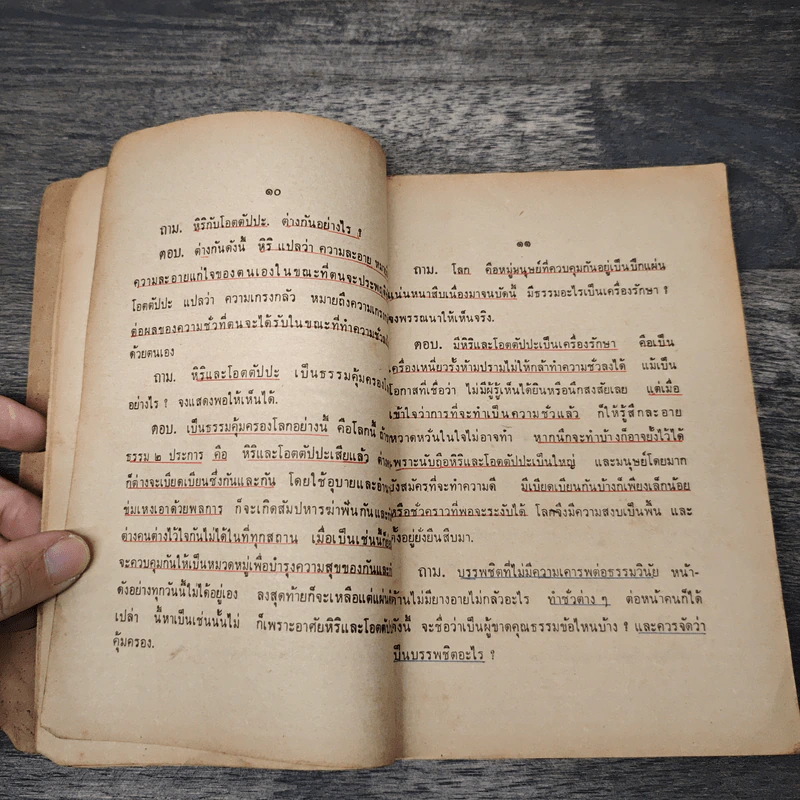 ๑๐
ถาม. หิริกับโอตตัปปะ. ต่างกันอย่างไร ?
ตอบ. ต่างกันดังนี้ หิริ แปลว่า ความละอาย
ความละอายแก่ใจของตนเองในขณะที่ตนจะประพฤติ
โอตตัปปะ แปลว่า ความเกรงกลัว หมายถึงความเกรง
ต่อผลของความชั่วที่ตนจะได้รับในขณะที่ทำความชั่ว
ด้วยตนเอง
ถาม. หิริและโอตตัปปะ เป็นธรรมคุ้มครอง
อย่างไร ? จงแสดงพอให้เห็นได้.
ตอบ. เป็นธรรมคุ้มครองโลกอย่างนี้ คือโลกนี้
ธรรม ๒ ประการ คือ หิริและโอตตัปปะเสียแล้ว
ก็ต่างจะเบียดเบียนซึ่งกันและกัน โดยใช้อุบายและ
ข่มเหงเอาด้วยพลการ ก็จะเกิดสัมปหารฆ่าฟันกันและ
ต่างคนต่างไว้ใจกันไม่ได้ในที่ทุกสถาน เมื่อเป็นเช่นนี้
จะควบคุมกันให้เป็นหมวดหมู่เพื่อบำรุงความสุขของกันและ
ดังอย่างทุกวันนี้ไม่ได้อยู่เอง ลงสุดท้ายก็จะเหลือแต่แผ่น
เปล่า นี้หาเป็นเช่นนั้นไม่ ก็เพราะอาศัยหิริและโอตตัป
คุ้มครอง.
๑๑
ถาม. โลก คือหมู่มนุษย์ที่ควบคุมกันอยู่เป็นปึกแผ่น
แน่นหนาสืบเนื่องมาจนบัดนี้ มีธรรมอะไรเป็นเครื่องรักษา ?
จงพรรณนาให้เห็นจริง.
ตอบ. มีหิริและโอตตัปปะเป็นเครื่องรักษา คือเป็น
เครื่องเหนี่ยวรั้งห้ามปรามไม่ให้กล้าทำความชั่วลงได้ แม้เป็น
โอกาสที่เชื่อว่า ไม่มีผู้รู้เห็นได้ยินหรือนึกสงสัยเลย แต่เมื่อ
เข้าใจว่าการที่จะทำเป็นความชั่วแล้ว ก็ให้รู้สึกละอาย
หวาดหวั่นในใจไม่อาจทำ หากนึกจะทำบ้างก็อาจยั้งไว้ได้
เพราะนับถือหิริและโอตตัปปะเป็นใหญ่ และมนุษย์โดยมาก
ยังสมัครที่จะทำความดี มีเบียดเบียนกันบ้างก็เพียงเล็กน้อย
หรือชั่วคราวที่พอจะระงับได้ โลกจึงมีความสงบเป็นพื้น และ
ตั้งอยู่ยั่งยืนสืบมา.
ถาม. บรรพชิตที่ไม่มีความเคารพต่อธรรมวินัย หน้า-
ด้านไม่มียางอายไม่กลัวอะไร ทำชั่วต่าง ๆ ต่อหน้าคนก็ได้
ดังนี้ จะชื่อว่าเป็นผู้ขาดคุณธรรมข้อไหนบ้าง ? และควรจัดว่า
เป็นบรรพชิตอะไร ?